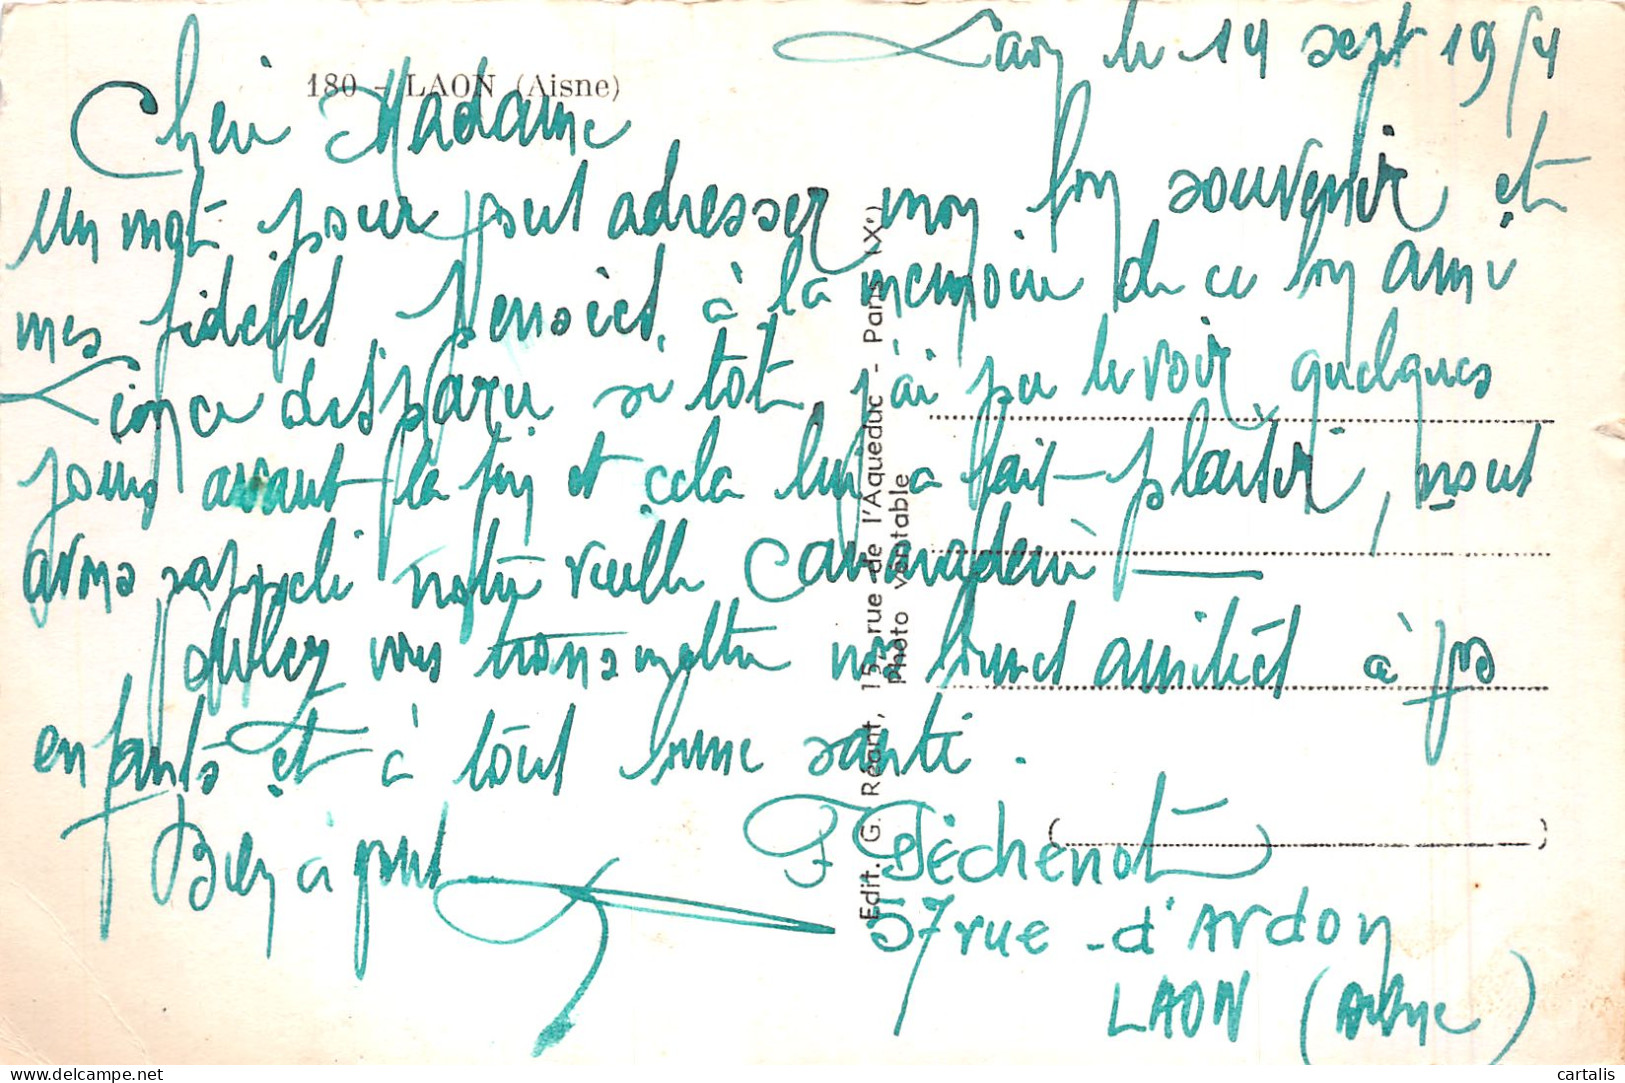 Laon le 14 sept 19
180 - LAON (Aisne)
Chère Madame
Un mot pour vous adresser mon bon souvenir et
mes fidèles pensées, à la mémoire de ce bon ami
disparu si tôt, j'ai pu le voir quelques
jours avant la fin et cela lui a fait plaisir, nous
avons rappelé notre vieille camaraderie
Voulez vous transmettre nos bonnes amitiés à vos
enfants et à tous bonne santé.
Bien à vous
F Féchenot
57 rue d'Ardon
LAON (Aisne)
Edit. G. Réant, 15, rue de l'Aqueduc - Paris (Xe)
photo véritable
cartalis
delcampe.net